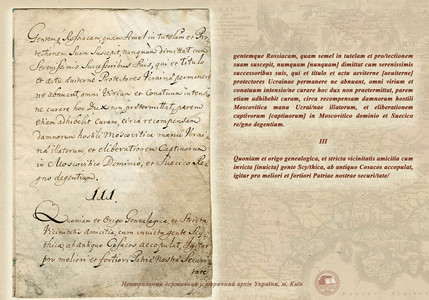 Gentemq Rossiacam, quam Semel in tutelam et Pro
tectionem Suam Suscepit, nunquam Dimittat cum
Serenissimis Successoribus Suis, qui et titulo
et actu aviterne Protectores Ucrainæ permanere
ne abnuant, omni Virium et Conatuum intensio
ne curare hoc dux non prætermittat, parem
etiam adhibebit curam, circa recompensam
damnorum hostili Moscovitica manu Ucrai
næ illatorum, et eliberationem Captivorum
in Moscovitico Dominio, et Suecico Re
gno degentium.
III.
Quoniam et Origo Genealogica, et Stricta
Vicinitatis amicitia, cum invicta gente Scy
thica, ab antiquo Cosacos accopulat, igitur
pro meliori et fortiori Patriæ nostræ Securi
tate
gentemque Rossiacam, quam semel in tutelam et pro/tectionem
suam suscepit, numquam [nunquam] dimittat cum serenissimis
successoribus suis, qui et titulo et actu aeviterne [aeuiterne]
protectores Ucrainae permanere ne abnuant, omni virium et
conatuum intensio/ne curare hoc dux non praetermittat, parem
etiam adhibebit curam, circa recompensam damnorum hostili
Moscovitica manu Ucrai/nae illatorum, et eliberationem
captivorum [captiuorum] in Moscovitico dominio et Suecico
re/gno degentium.
III
Quoniam et origo genealogica, et stricta vicinitatis amicitia cum
invicta [inuicta] gente Scy/thica, ab antiquo Cosacos accopulat,
igitur pro meliori et fortiori Patriae nostrae securi/tate/
Центральний державний історичний архів України, м. Київ